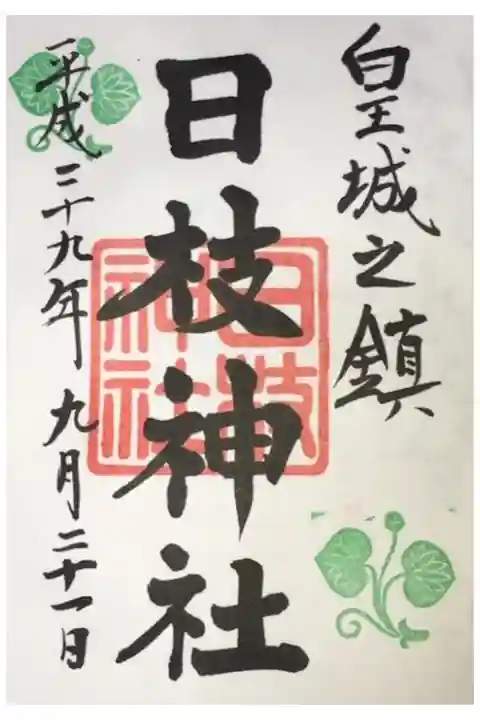 皇城之鎮
日枝神社
日枝神社
平成二十九年 九月二十一日